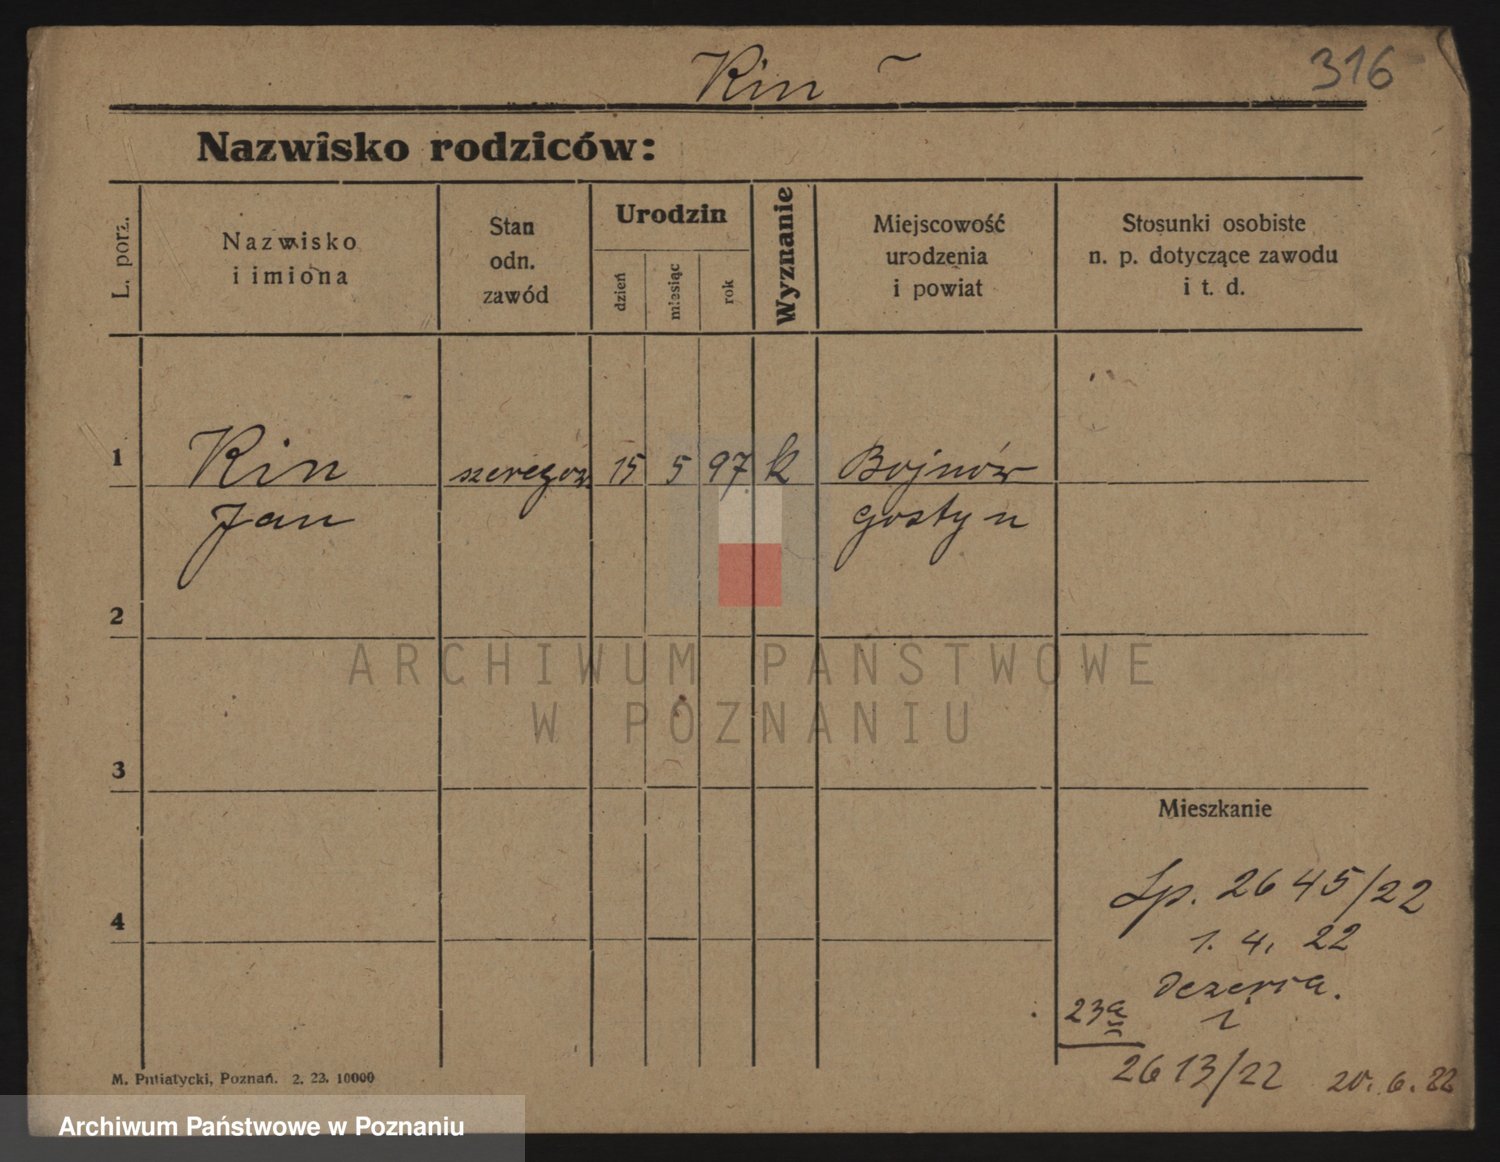 Kin ~
316
Nazwisko rodziców:
L. porz.
Nazwisko
i imiona
Stan
odn.
zawód
Urodzin
dzień
miesiąc
rok
Wyznanie
Miejscowość
urodzenia
i powiat
Stosunki osobiste
n. p. dotyczące zawodu
i t. d.
1
Kin
szeregow.
15
5
97
k
Bojnów
Jan
Gostyn
2
ARCHIWUM PAŃSTWOWE
W POZNANIU
3
Mieszkanie
Lp. 2645/22
4
1. 4. 22
23a
2613/22 20. 6. 22
M. Putiatycki, Poznań. 2. 23. 10000
Archiwum Państwowe w Poznaniu